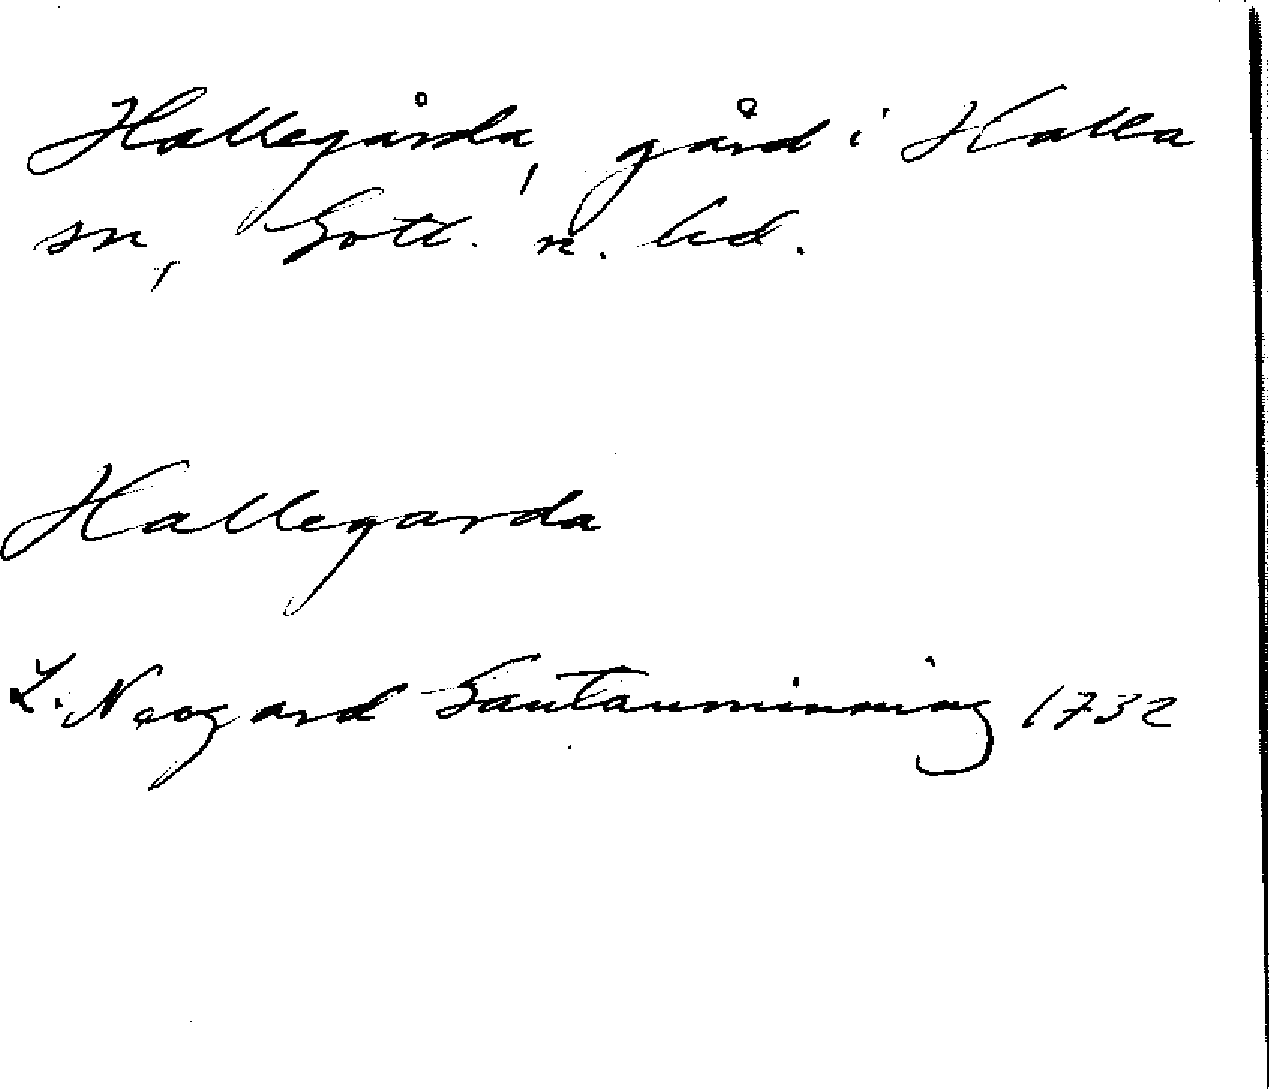 Hallegårda, gård i Halla
sn, Gotl. n. hd.
Hallegarda
L. Neogard Gautauminning 1732